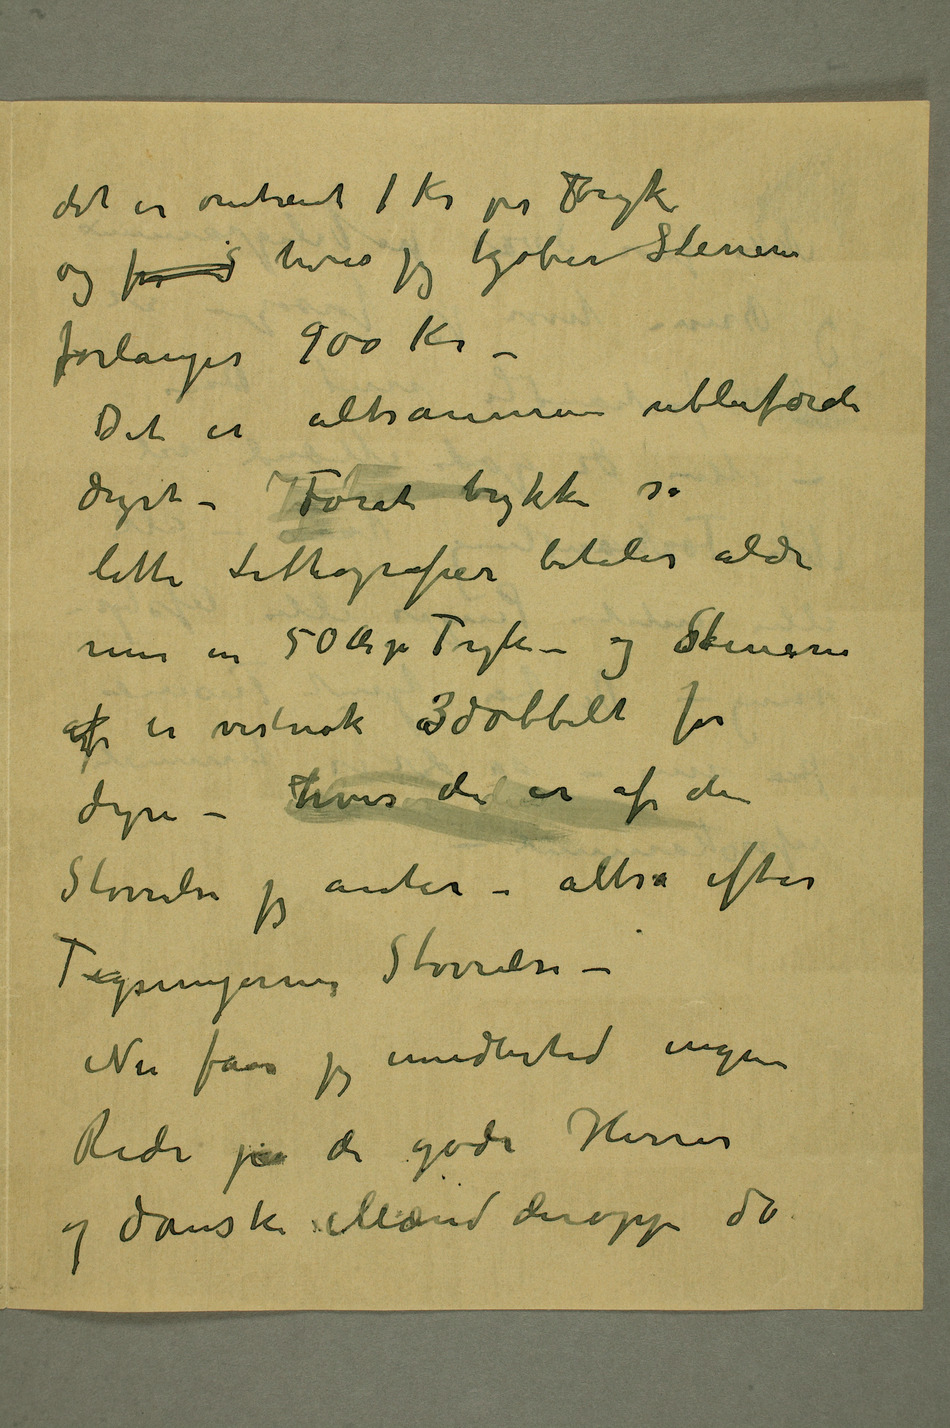 det er omtrent 1 Kr per Tryk
og for S hvis jeg kjøber Stenene
forlanges 900 Kr –
Det er altsammen ublufærdi
dyrt – Forat trykke så
lette Lithografier betales aldri
mer en 50 Ør pr Tryk – og Stenene
af er vistnok 3dobbelt for
dyre – hvis de er af den
Størrelse jeg antar – altså efter
Tegningernes Størrelse –
Nu faar jeg imidlertid ingen
Rede på de gode Herrer
og danske Mænd deroppe da